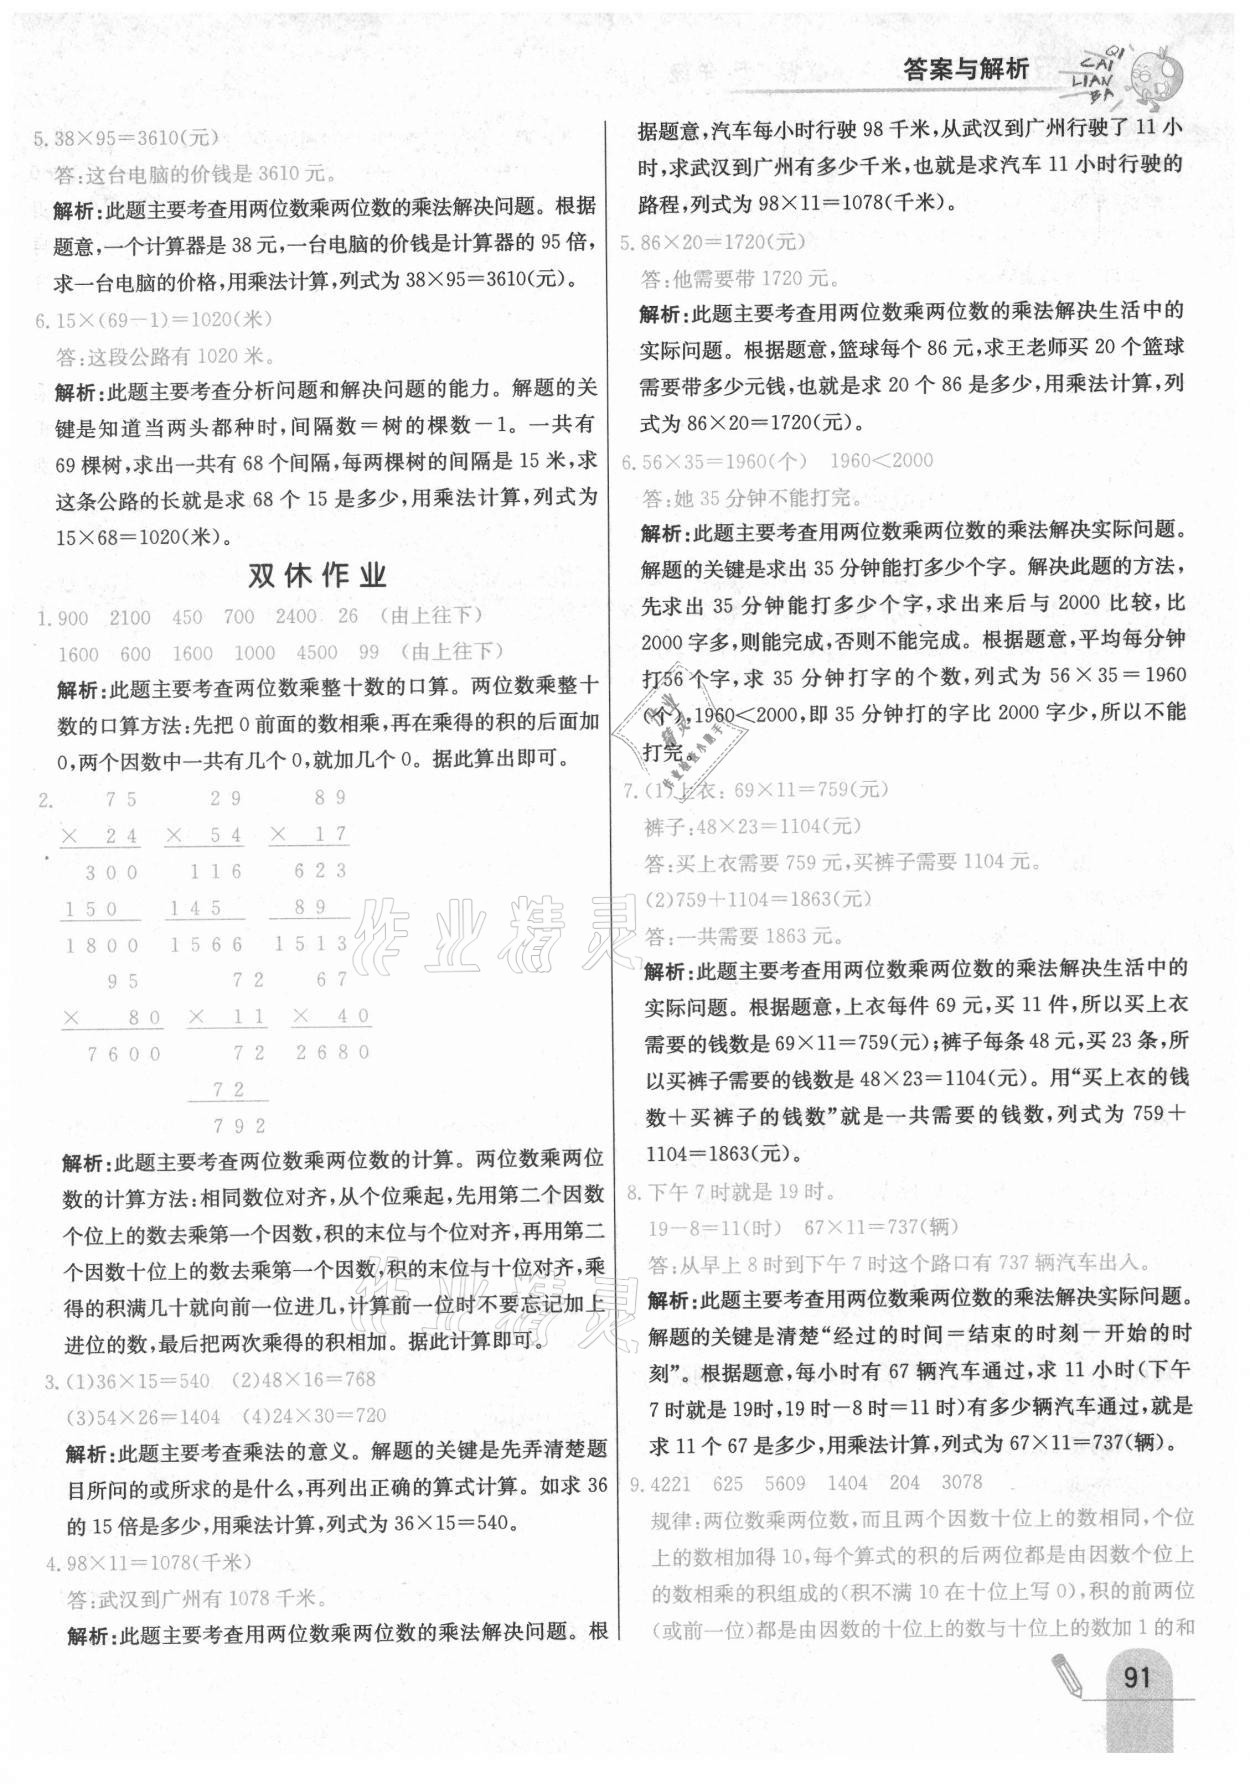 答案与解析
QI
CAI
LIAN
BA
5.38×95=3610(元)
答:这台电脑的价钱是 3610 元。
解析:此题主要考查用两位数乘两位数的乘法解决问题。根据
题意,一个计算器是 38 元,一台电脑的价钱是计算器的 95 倍,
求一台电脑的价格,用乘法计算,列式为 38×95=3610(元)。
6.15×(69-1)=1020(米)
答:这段公路有 1020 米。
解析:此题主要考查分析问题和解决问题的能力。解题的关
键是知道当两头都种时,间隔数=树的棵数-1。一共有
69 棵树,求出一共有 68 个间隔,每两棵树的间隔是 15 米,求
这条公路的长就是求 68 个 15 是多少,用乘法计算,列式为
15×68=1020(米)。
双休作业
1.900 2100 450 700 2400 26 (由上往下)
1600 600 1600 1000 4500 99 (由上往下)
解析:此题主要考查两位数乘整十数的口算。两位数乘整十
数的口算方法:先把 0 前面的数相乘,再在乘得的积的后面加
0,两个因数中一共有几个 0,就加几个 0。据此算出即可。
2. 75 29 89
× 24 × 54 × 17
300 116 623
150 145 89
1800 1566 1513
95 72 67
× 80 × 11 × 40
7600 72 2680
72
792
解析:此题主要考查两位数乘两位数的计算。两位数乘两位
数的计算方法:相同数位对齐,从个位乘起,先用第二个因数
个位上的数去乘第一个因数,积的末位与个位对齐,再用第二
个因数十位上的数去乘第一个因数,积的末位与十位对齐,乘
得的积满几十就向前一位进几,计算前一位时不要忘记加上
进位的数,最后把两次乘得的积相加。据此计算即可。
3.(1)36×15=540 (2)48×16=768
(3)54×26=1404 (4)24×30=720
解析:此题主要考查乘法的意义。解题的关键是先弄清楚题
目所问的或所求的是什么,再列出正确的算式计算。如求 36
的 15 倍是多少,用乘法计算,列式为 36×15=540。
4.98×11=1078(千米)
答:武汉到广州有 1078 千米。
解析:此题主要考查用两位数乘两位数的乘法解决问题。根
据题意,汽车每小时行驶 98 千米,从武汉到广州行驶了 11 小
时,求武汉到广州有多少千米,也就是求汽车 11 小时行驶的
路程,列式为 98×11=1078(千米)。
5.86×20=1720(元)
答:他需要带 1720 元。
解析:此题主要考查用两位数乘两位数的乘法解决生活中的
实际问题。根据题意,篮球每个 86 元,求王老师买 20 个篮球
需要带多少元钱,也就是求 20 个 86 是多少,用乘法计算,列
式为 86×20=1720(元)。
6.56×35=1960(个) 1960<2000
答:她 35 分钟不能打完。
解析:此题主要考查用两位数乘两位数的乘法解决实际问题。
解题的关键是求出 35 分钟能打多少个字。解决此题的方法,
先求出 35 分钟能打多少个字,求出来后与 2000 比较,比
2000 字多,则能完成,否则不能完成。根据题意,平均每分钟
打56 个字,求 35 分钟打字的个数,列式为 56×35=1960
(个),1960<2000,即 35 分钟打的字比 2000 字少,所以不能
打完。
7.(1)上衣:69×11=759(元)
裤子:48×23=1104(元)
答:买上衣需要 759 元,买裤子需要 1104 元。
(2)759+1104=1863(元)
答:一共需要 1863 元。
解析:此题主要考查用两位数乘两位数的乘法解决生活中的
实际问题。根据题意,上衣每件 69 元,买 11 件,所以买上衣
需要的钱数是 69×11=759(元);裤子每条 48 元,买 23 条,所
以买裤子需要的钱数是 48×23=1104(元)。用“买上衣的钱
数+买裤子的钱数”就是一共需要的钱数,列式为 759+
1104=1863(元)。
8.下午 7 时就是 19 时。
19-8=11(时) 67×11=737(辆)
答:从早上 8 时到下午 7 时这个路口有 737 辆汽车出入。
解析:此题主要考查用两位数乘两位数的乘法解决实际问题。
解题的关键是清楚“经过的时间=结束的时刻-开始的时
刻”。根据题意,每小时有 67 辆汽车通过,求 11 小时(下午
7 时就是 19时,19 时-8 时=11 时)有多少辆汽车通过,就是
求 11 个 67 是多少,用乘法计算,列式为 67×11=737(辆)。
9.4221 625 5609 1404 204 3078
规律:两位数乘两位数,而且两个因数十位上的数相同,个位
上的数相加得 10,每个算式的积的后两位都是由因数个位上
的数相乘的积组成的(积不满 10 在十位上写 0),积的前两位
(或前一位)都是由因数的十位上的数与十位上的数加 1 的和
作业精灵
作业精灵
作业
精灵
作业检查小助手
91